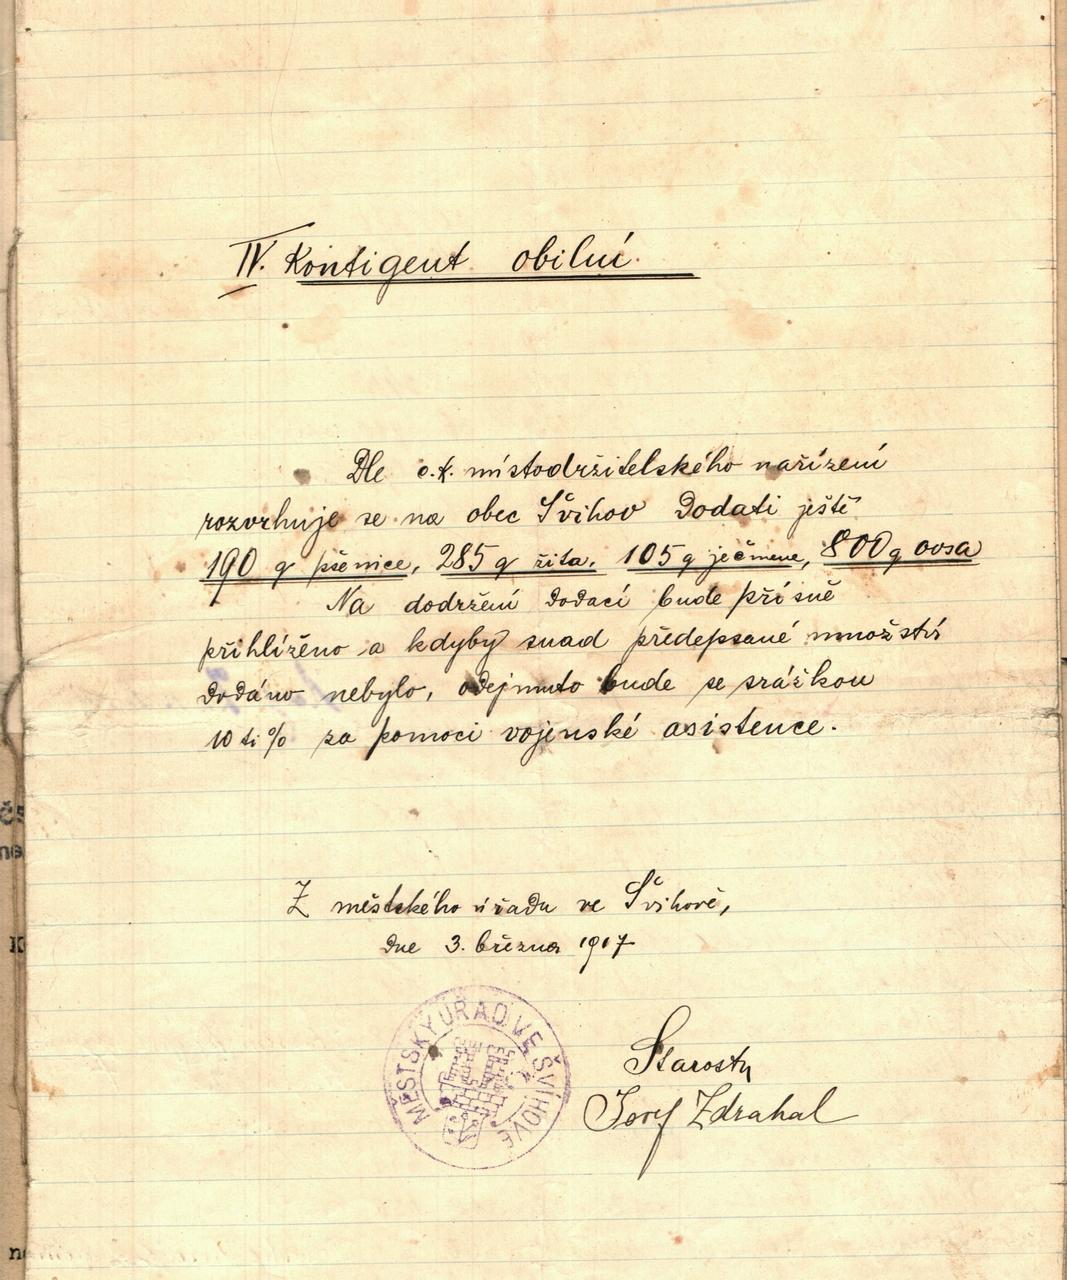 IV. Kontigent obilní.
Dle c.k. místodržitelského nařízení
rozvrhuje se na obec Švihov dodati ještě
190 q pšenice, 285 q žita, 105 q ječmene, 800 q ovsa
Na dodržení dodací bude přísně
přihlíženo a kdyby snad předepsané množství
dodáno nebylo, odejmuto bude se srážkou
10 ti % za pomoci vojenské asistence.
Z městského úřadu ve Švihově,
dne 3. března 1917
MĚSTSKÝ ÚŘAD VE ŠVIHOVĚ
Starosta
Josef Zdrahal